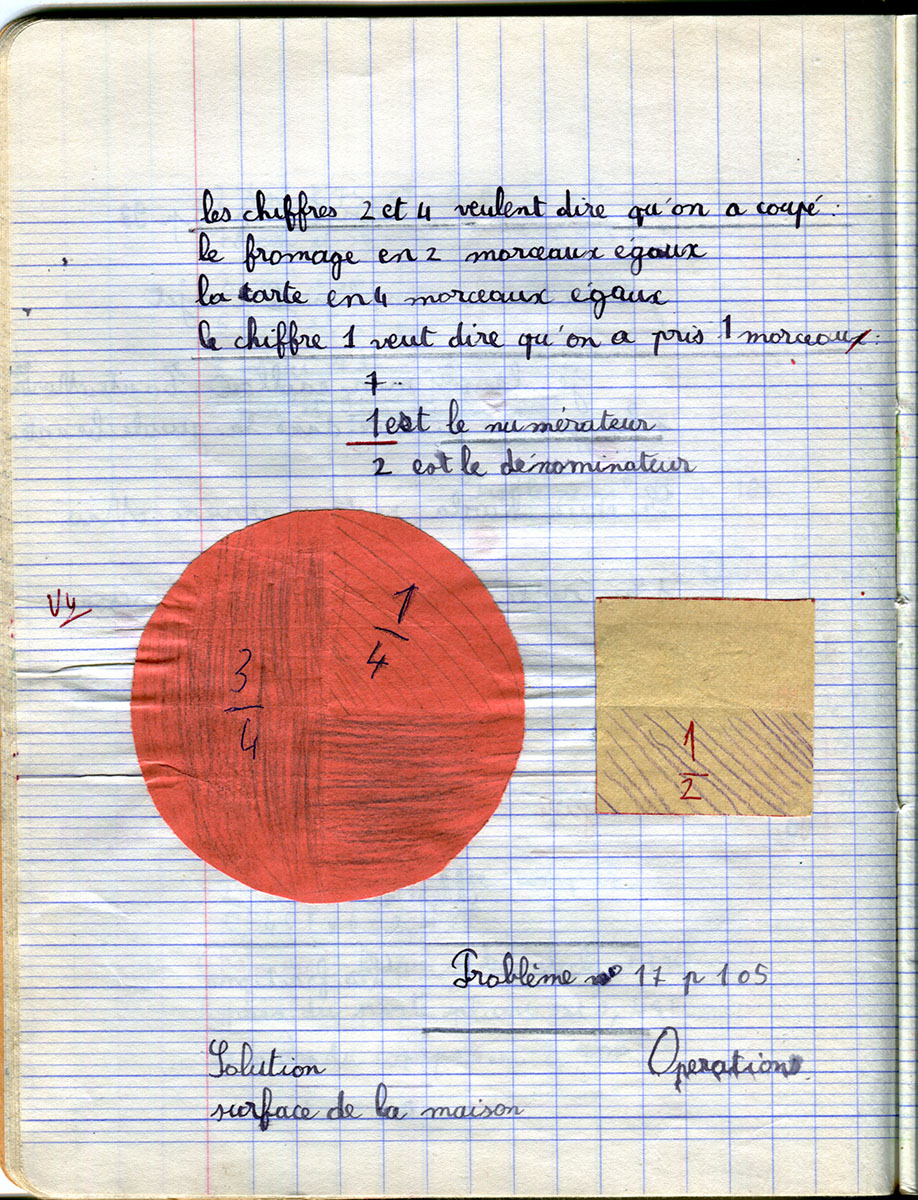 les chiffres 2 et 4 veulent dire qu'on a coupé :
le fromage en 2 morceaux égaux
la tarte en 4 morceaux égaux
le chiffre 1 veut dire qu'on a pris 1 morceaux :
1 est le numérateur
2 est le dénominateur
Vu
1
4
3
4
1
2
Problème no 17 p 105
Solution Operation
surface de la maison